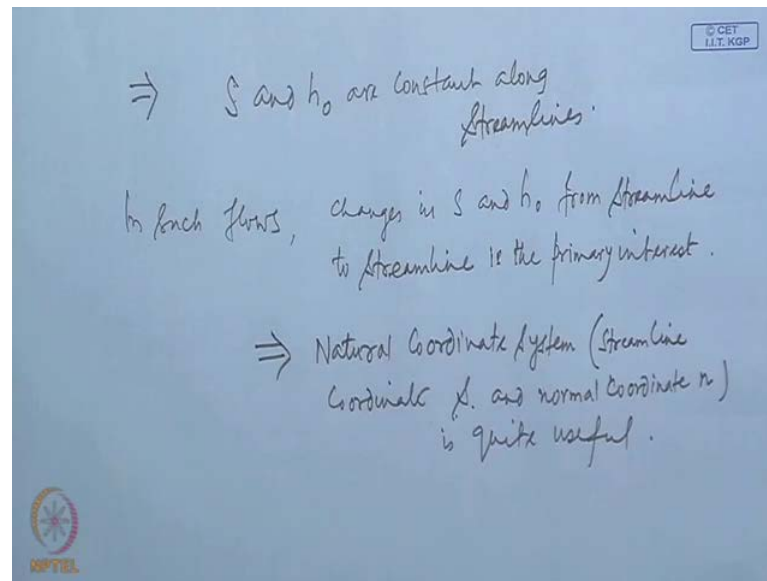 © CET
I.I.T. KGP
⇒ S and h₀ are constant along
Streamlines.
In such flows, changes in S and h₀ from Streamline
to Streamline is the primary interest.
⇒ Natural Coordinate System (Streamline
Coordinate s. and normal Coordinate n)
is quite useful.
NPTEL